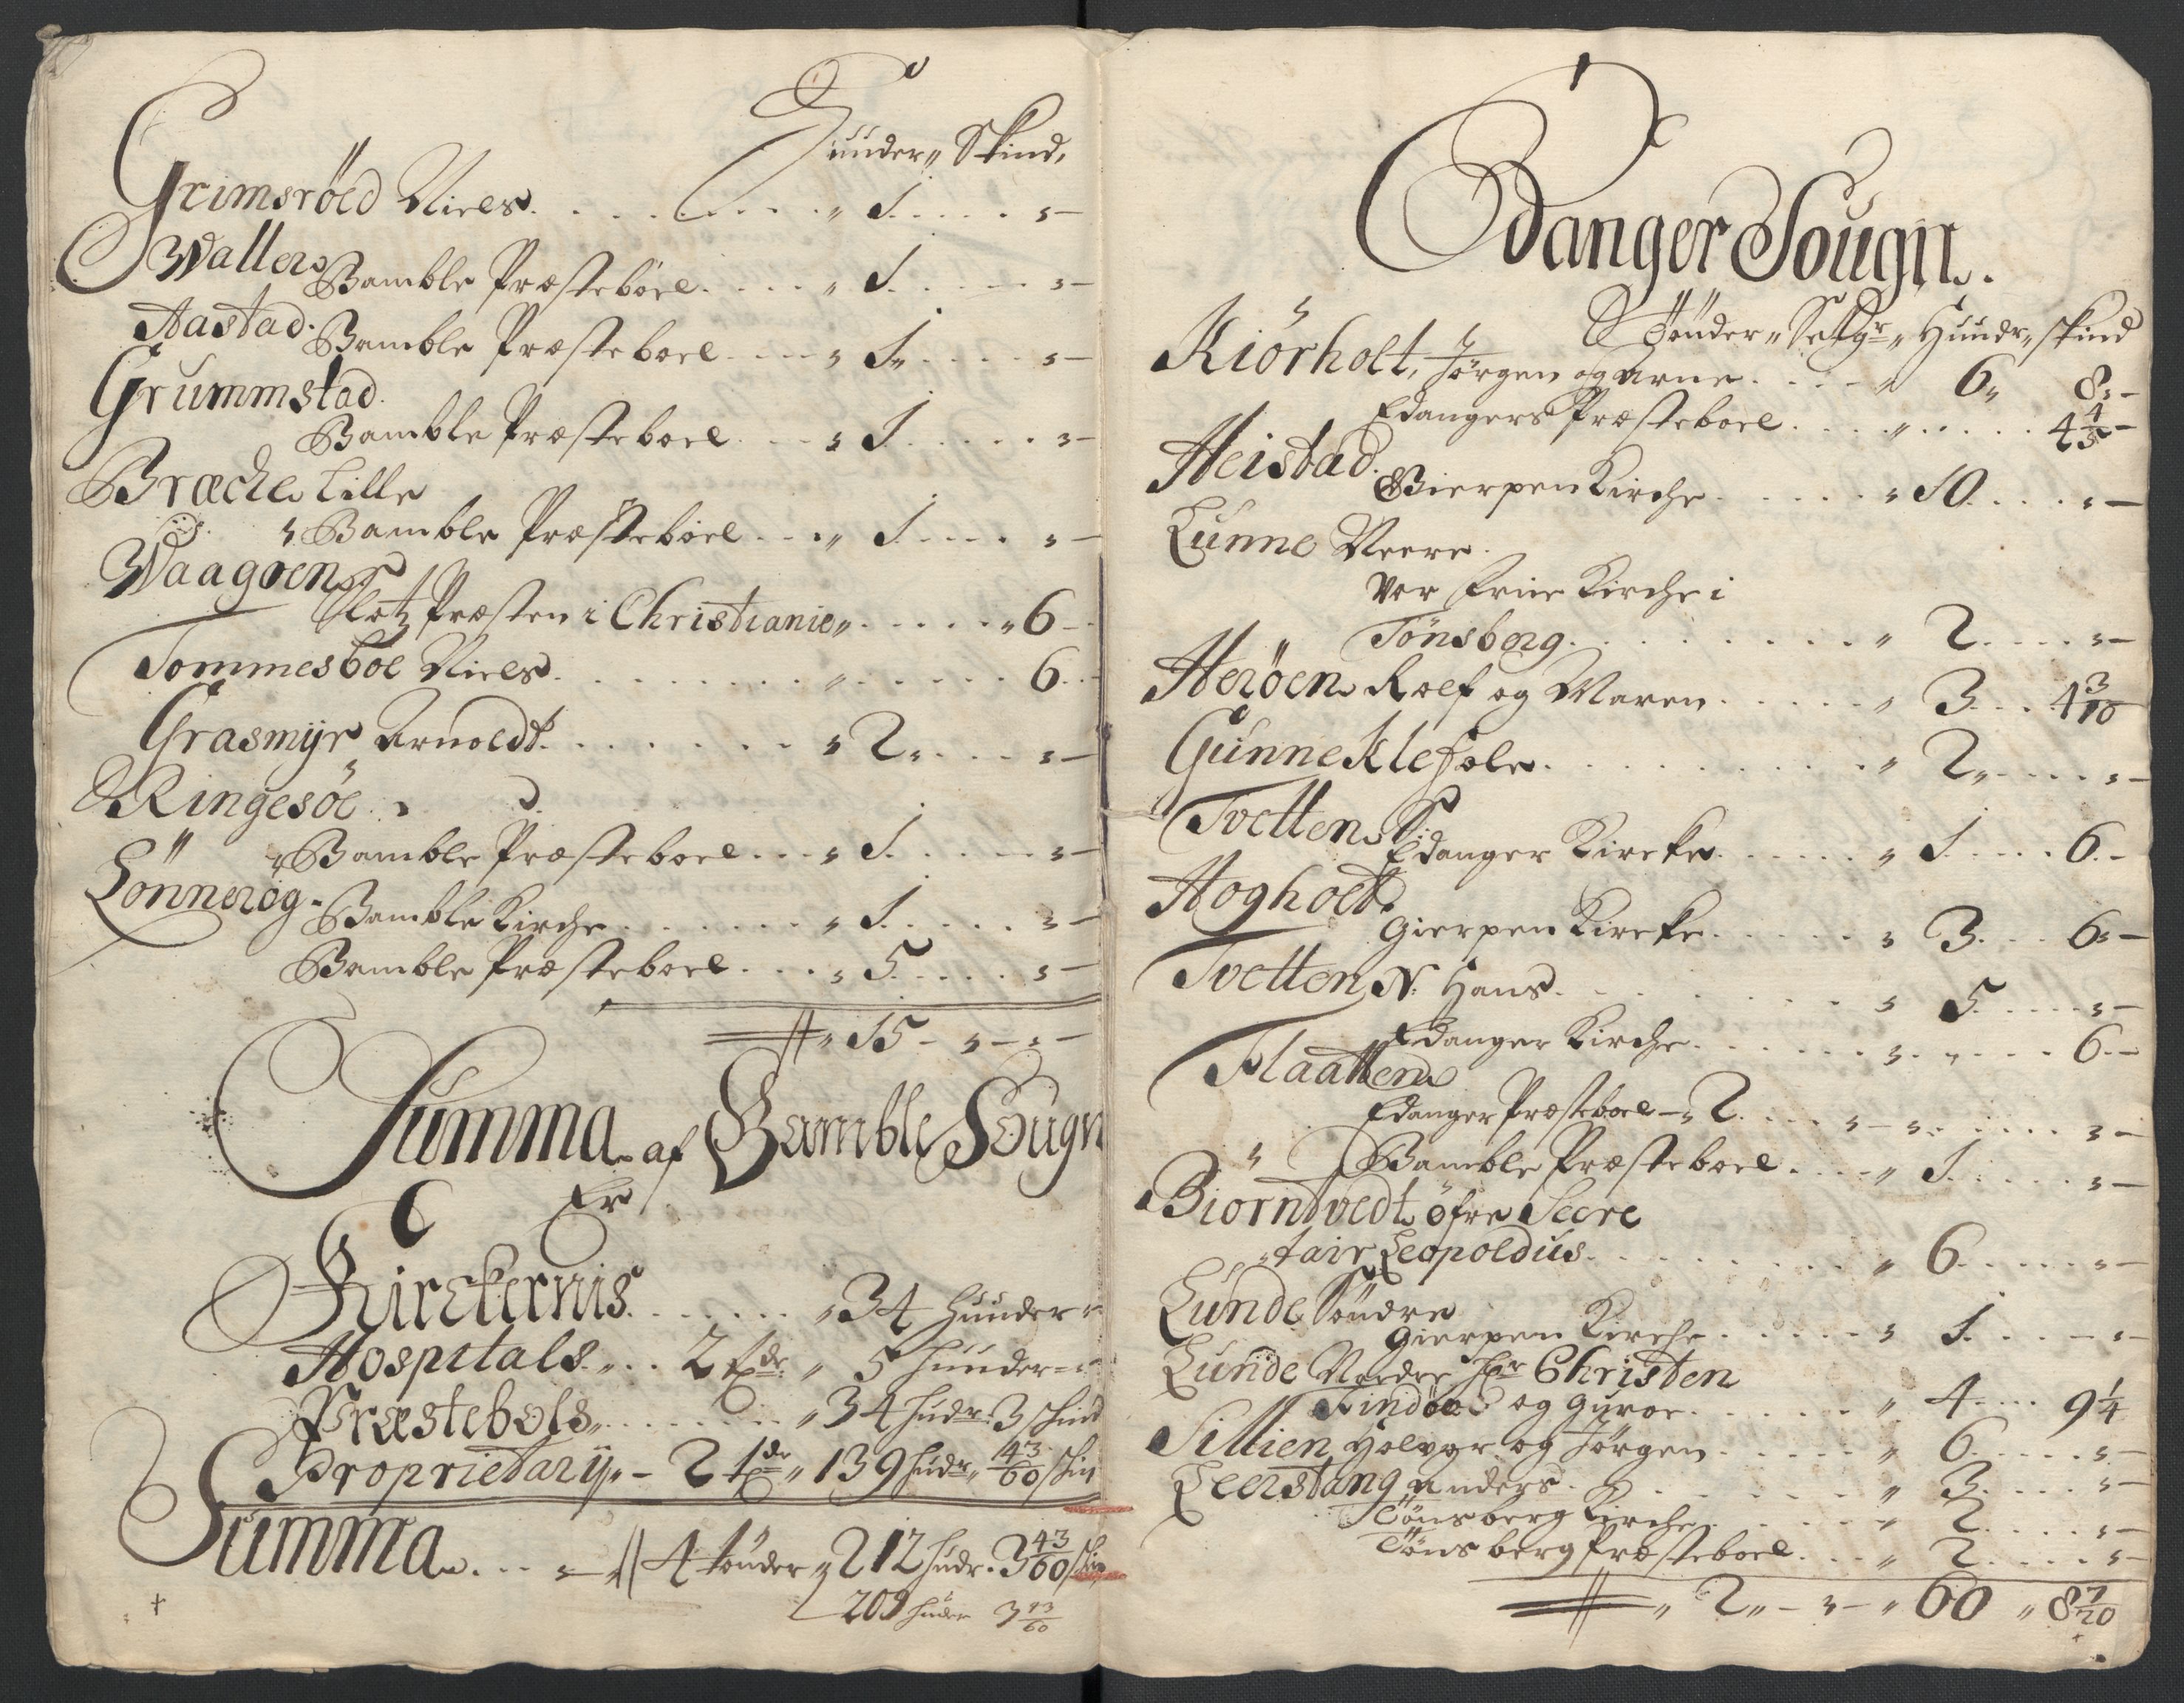 Huuder „ Skind,
Grimsröed Niels . . . . . . . „ 1 . . . . . „ —
Waller
Bamble Præsteböel . . . . „ 1 . . . . . „ —
Aastad.
Bamble Præsteboel . . . . „ 1 „ . . . . „ —
Grummstad.
Bamble Præsteboel . . . „ 1 . . . . . „ —
Bræche Lille
„ Bamble Præsteböel . . . „ 1 . . . . „ —
Waagöen
Slotz Præsten i Christianie „ . . . . . „ 6 —
Tommesböe Niels . . . . . . . . „ . . . . . 6 . .
Grasmÿr Arnoldt . . . . . . . „ 2 „ . . . „ —
Ringesöe
„ Bamble Præsteboel . . . „ 1 . . . . . „ —
Lönnerög.
Bamble Kirche . . . . . . . „ 1 . . . . . „ —
Bamble Præsteboel . . . „ 5 . . . . . „ —
„ 15 — „ — „ —
Summa af Bamble Sougn
Er
Kirckernis . . . . . . „ 34 Huuder „
Hospitals „ . . 2 tdr „ 5 Huuder
Præstebols „ . . . . . . „ 34 hudr. 3 skind
Proprietarÿ „ — 2 tdr „ 139 hudr „ 43/60 skin
Summa . . . „ — 4 tönder „ 212 hudr. 3 43/60 skin
209 huder 3 43/60
Edanger Sougn.
Tönder „ Setgr „ Huudr „ skind
Kiörholt, Jörgen og Arne . . . . „ 6 „ 8 „ —
Edangers Præsteboel . . . . „ . . . . . 4 4/5 —
Heistad.
Gierpen Kirche . . . . . „ 10 . . . . „ —
Lunne Neere.
Vor Frue Kirche i
Tönsberg . . . . . . . . . „ 2 . . . . „ —
Heröen Roef og Maren . . . . . „ 3 . . . 4 3/10
Gunneklef Ole . . . . . . . . . „ 2 „ . . . . „ —
Tvetten S.
Edanger Kircke . . . . . . „ 1 . . . . 6 . —
Hogholt.
Gierpen Kircke . . . . . „ 3 . . . 6 „ —
Tvetten N: Hans . . . . . . . . „ 5 . . . . „ —
Edanger Kirche . . . . . . „ . „ . . . . 6 . —
Flaatten
Edanger Præsteboel — „ 2 . . . . „ — „ . . . . . . „ —
„ Bamble Præsteboel . . . . „ 1 . . . . . „ —
Biorntvedt öfre Secre
„ tair Leopoldus . . . . . . . . „ 6 . . . . . „ —
Lunde Söndre
Gierpen Kirche . . . . . „ 1 . . . . „ —
Lunde Nordre hr Christen
Findöe og Guroe . . . . . . „ 4 . . . . 9 1/4
Sillien, Holvor og Jörgen . . . . . „ 6 . . . . . „ —
Leerstang Anders . . . . . . . . „ 3 . . . . „ —
Tönsberg Kirche . . . . . . „ 2 . . . . „ —
Tönsberg Præsteboel . . . . „ 2 . . . . . „ —
„ 2 „ — „ — „ 60 „ 8 7/20